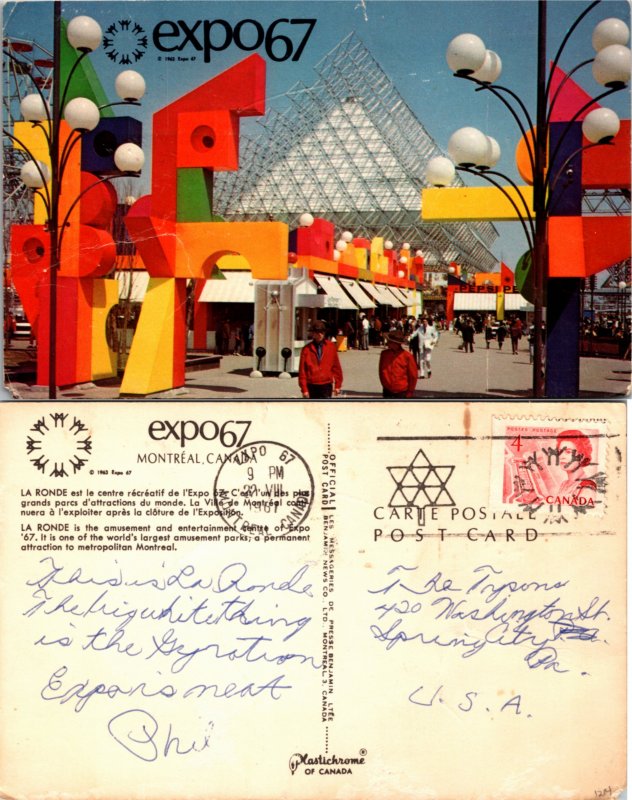 expo67
© 1963 Expo 67
PEPSI
expo67
MONTRÉAL, CANADA
© 1963 Expo 67
LA RONDE est le centre récréatif de l'Expo 67. C'est l'un des plus
grands parcs d'attractions du monde. La Ville de Montréal conti-
nuera à l'exploiter après la clôture de l'Exposition.
LA RONDE is the amusement and entertainment centre of Expo
'67. It is one of the world's largest amusement parks; a permanent
attraction to metropolitan Montreal.
This is La Ronde
The big white thing
is the Gyration
Expo is neat
Phil
OFFICIAL POST CARD
LES MESSAGERIES DE PRESSE BENJAMIN, LTÉE
BENJAMIN NEWS CO., LTD., MONTREAL 3, CANADA
Plastichrome®
OF CANADA
EXPO 67
9 PM
VIII
1967
CANADA
POSTES POSTAGE
4
CANADA
CARTE POSTALE
POST CARD
T he Tysons
420 Washington St.
Spring City
Pa.
U.S.A.